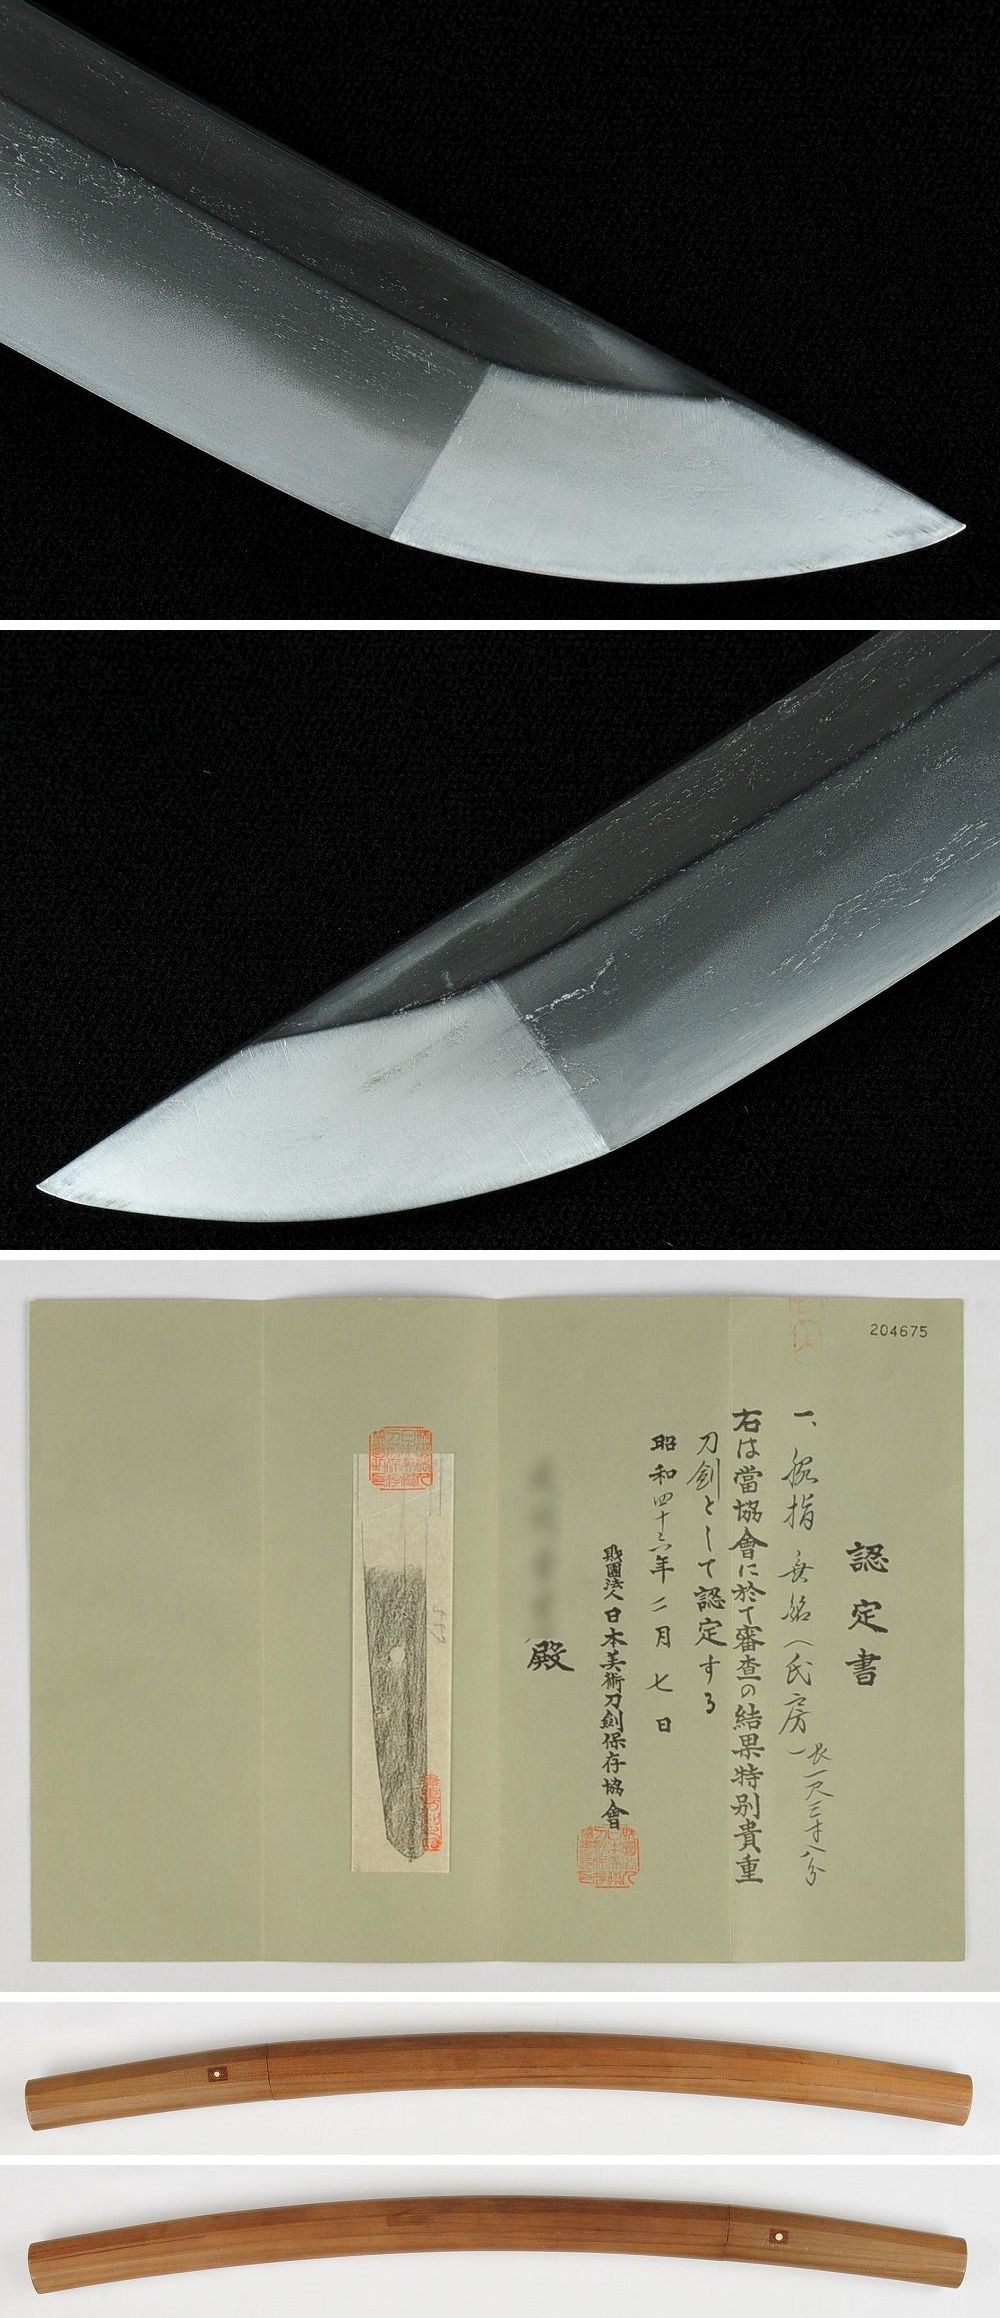 204675
認定書
一、脇指 無銘（氏房）
長一尺三寸八分
右は當協會に於て審査の結果特別貴重
刀劍として認定する
昭和四十六年二月七日
財團法人日本美術刀劍保存協會
殿